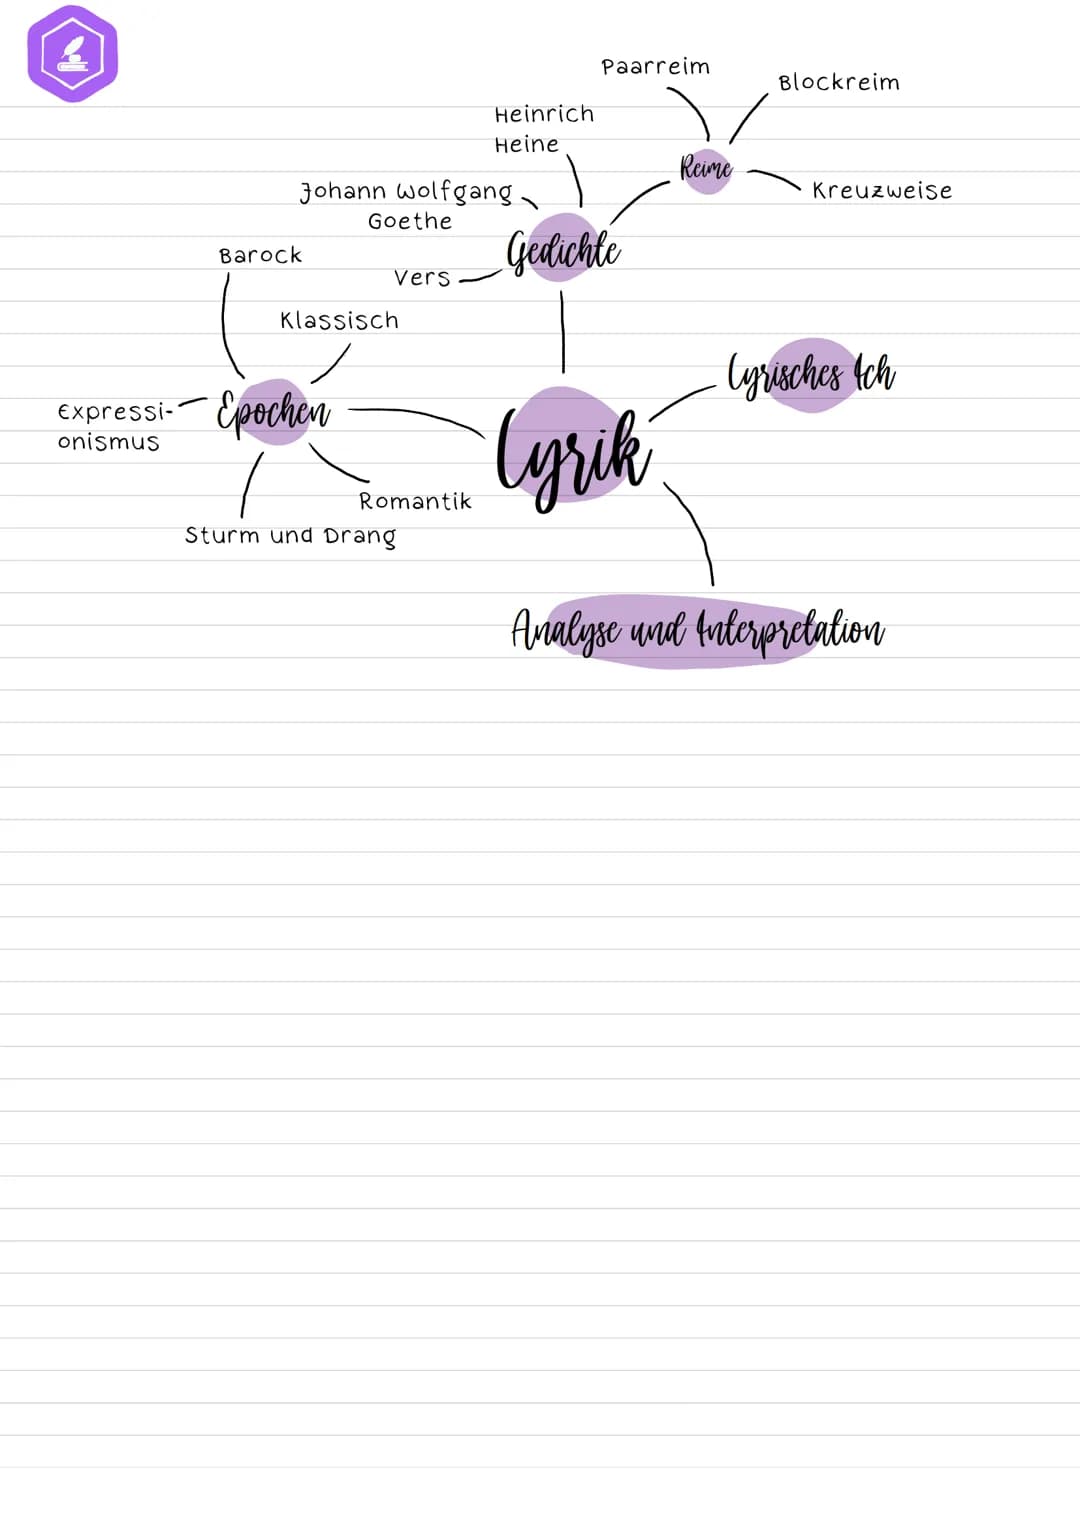 Paarreim
Blockreim
Heinrich
Heine
Reime
Kreuzweise
Johann Wolfgang
Goethe
Gedichte
Barock
Vers
Klassisch
Lyrisches Ich
Expressi-
onismus
Epochen
Lyrik
Romantik
Sturm und Drang
Analyse und Interpretation